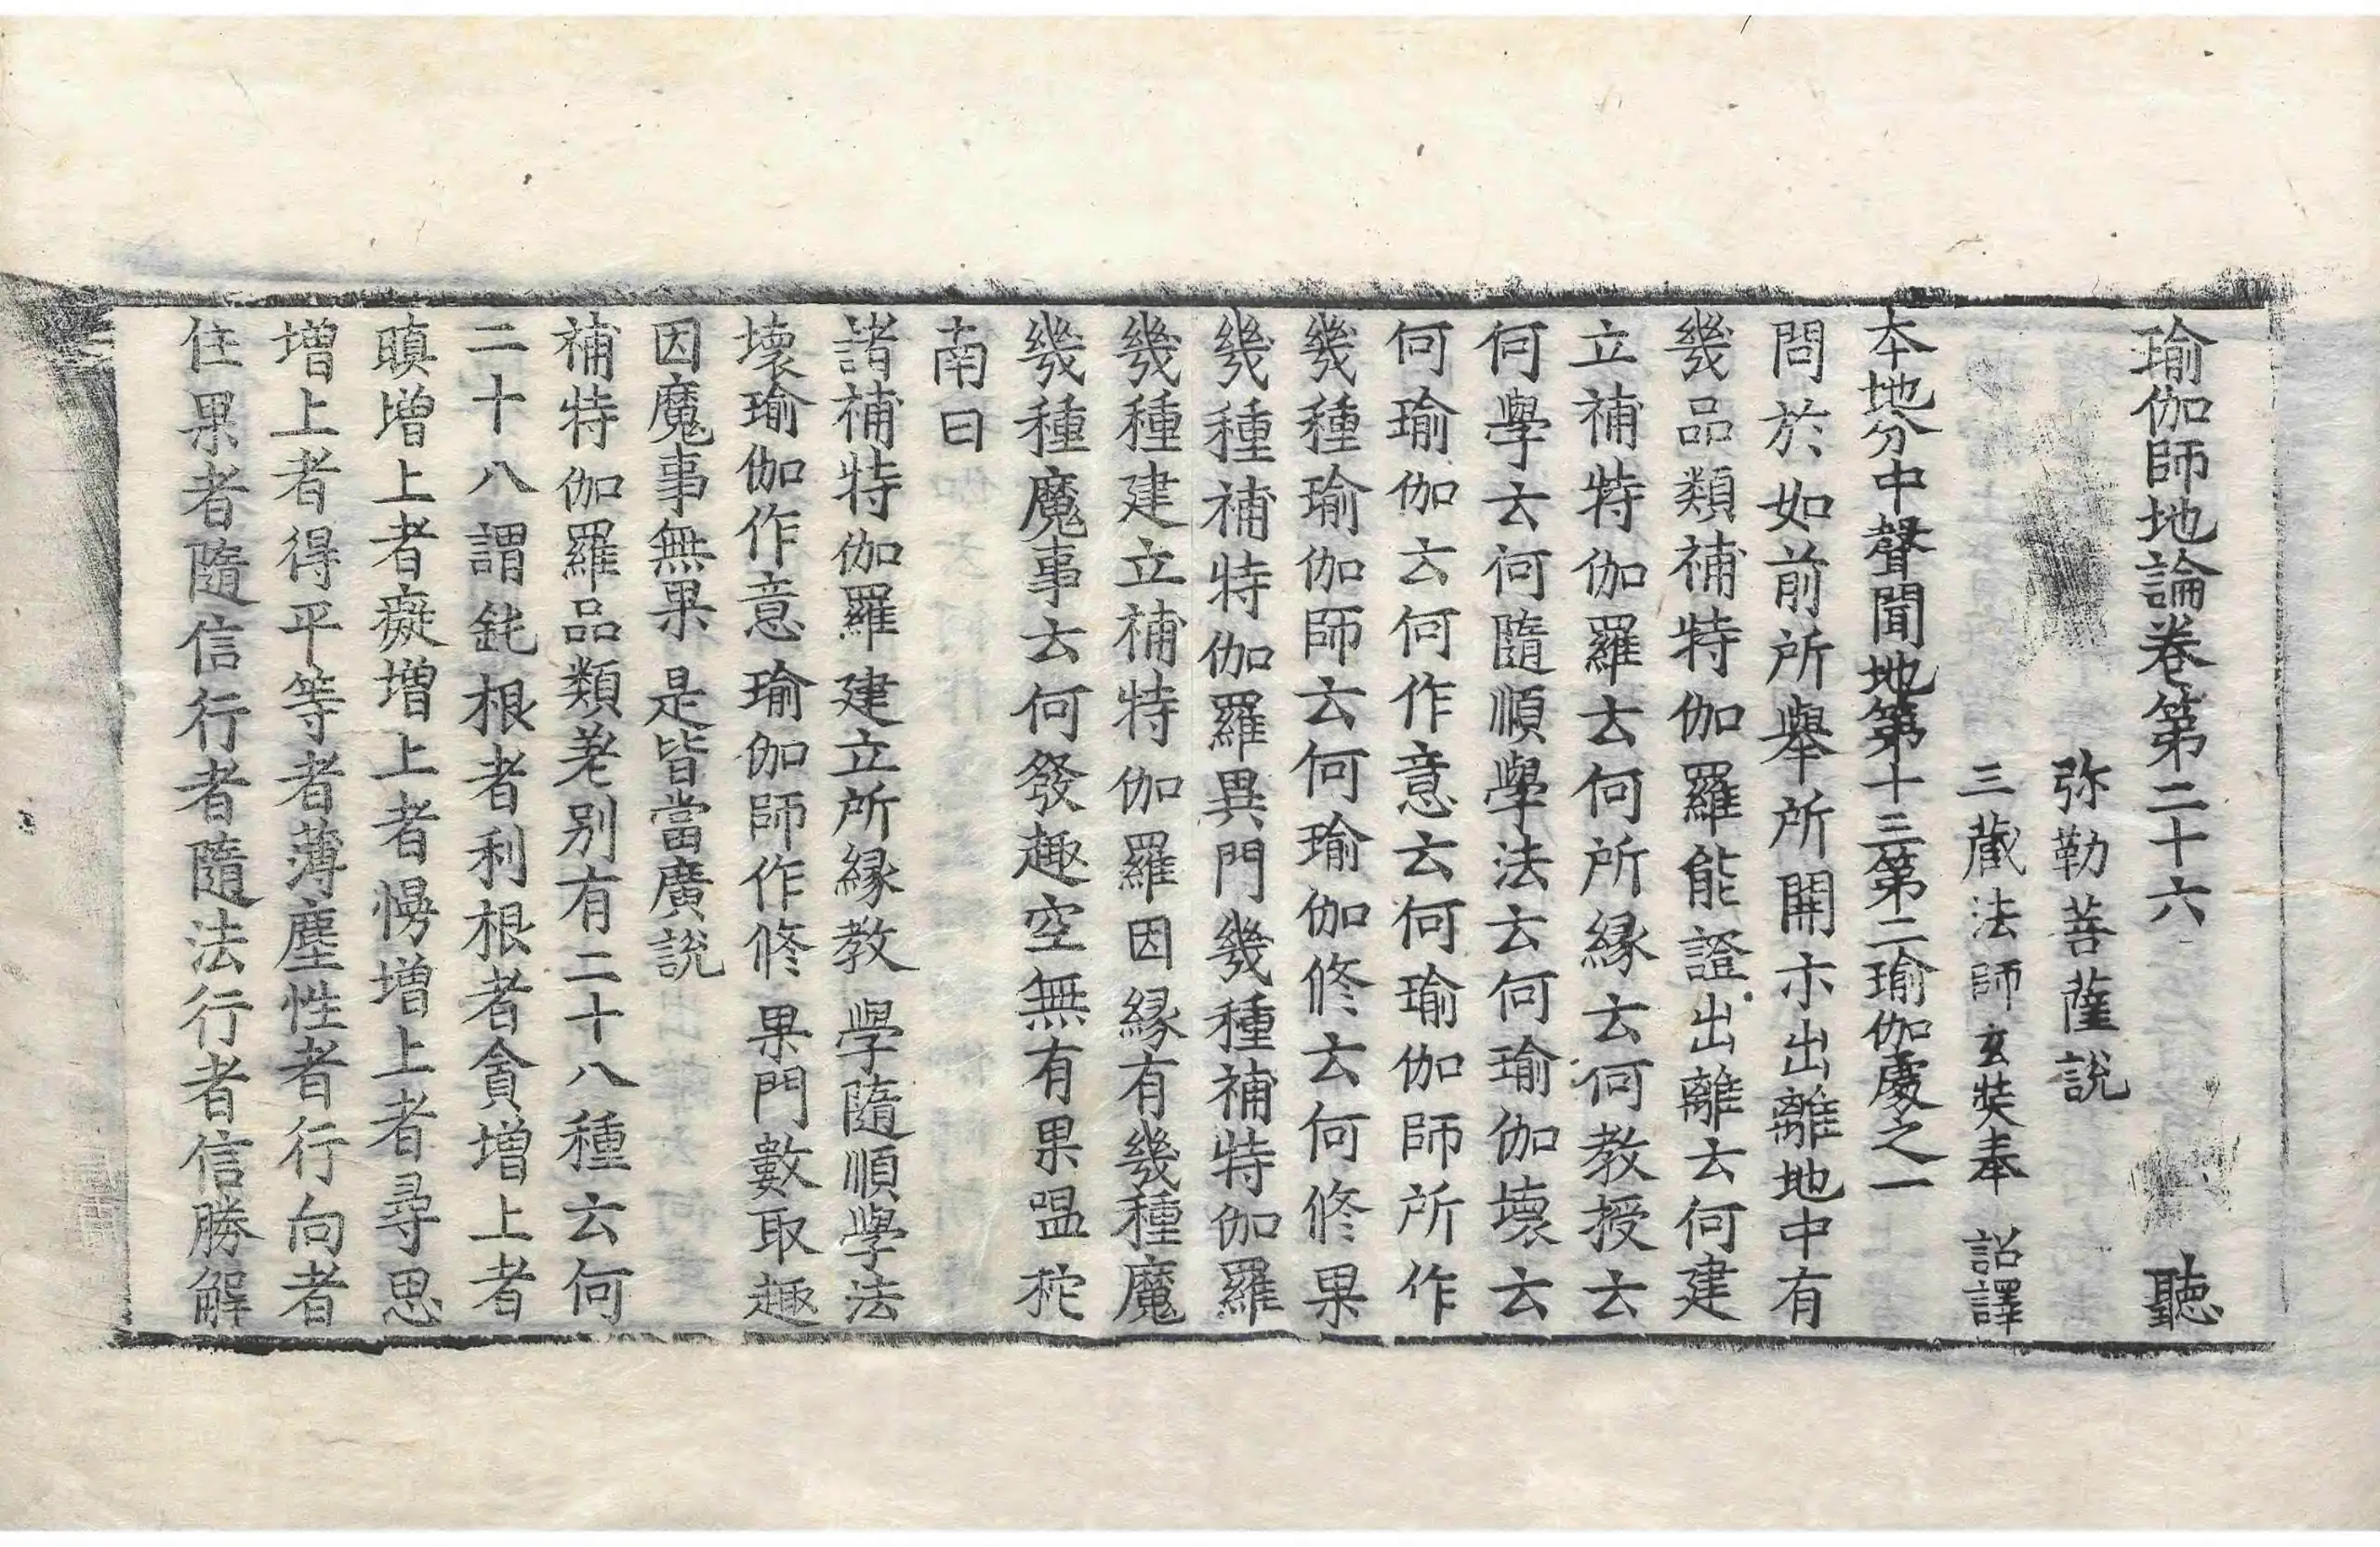 瑜伽師地論卷第二十六 聽
弥勒菩薩說
三藏法師玄奘奉 詔譯
本地分中聲聞地第十三第二瑜伽處之一
問於如前所舉所開示出離地中有
幾品類補特伽羅能證出離云何建
立補特伽羅云何所縁云何教授云
何學云何隨順學法云何瑜伽壞云
何瑜伽云何作意云何瑜伽師所作
幾種瑜伽師云何瑜伽修云何修果
幾種補特伽羅異門幾種補特伽羅
幾種建立補特伽羅因縁有幾種魔
幾種魔事云何發趣空無有果嗢柁
南曰
諸補特伽羅建立所縁教 學隨順學法
壞瑜伽作意瑜伽師作修 果門數取趣
因魔事無果 是皆當廣説
補特伽羅品類差別有二十八種云何
二十八謂鈍根者利根者貪増上者
瞋増上者癡増上者慢増上者尋思
增上者得平等者薄塵性者行向者
住果者隨信行者隨法行者信勝解